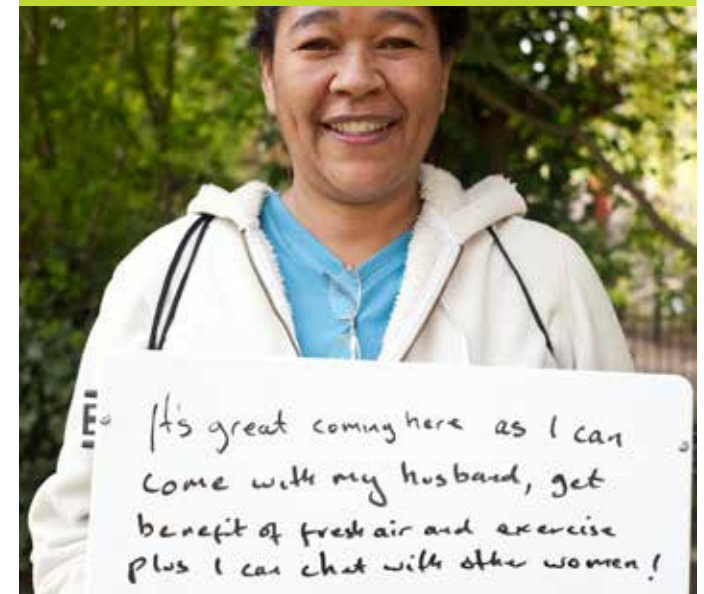 It's great coming here as I can
come with my husband, get
benefit of fresh air and exercise
plus I can chat with other women!